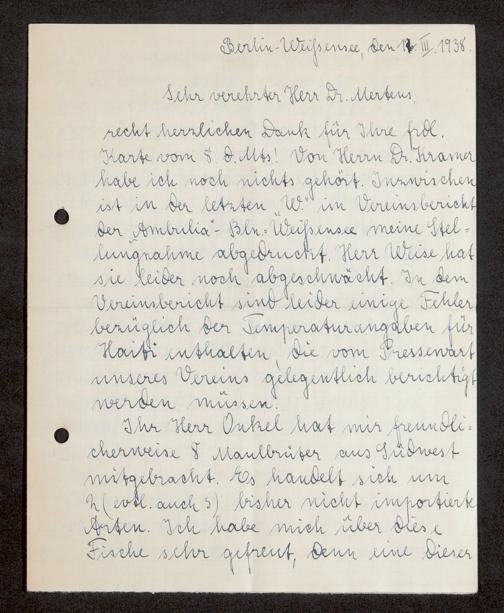 Berlin-Weißensee, den 12. III. 1938.
Sehr verehrter Herr Dr. Mertens,
recht herzlichen Dank für Ihre frdl.
Karte vom 8. d. Mts! Von Herrn Dr. Kramer
habe ich noch nichts gehört. Inzwischen
ist in der letzten „W" im Vereinsbericht
der „Ambulia"-Bln.-Weißensee meine Stel-
lungnahme abgedruckt. Herr Weise hat
sie leider noch abgeschwächt. In dem
Vereinsbericht sind leider einige Fehler
bezüglich der Temperaturangaben für
Haiti enthalten, die vom Pressewart
unseres Vereins gelegentlich berichtigt
werden müssen.
Ihr Herr Onkel hat mir freundli-
cherweise 8 Maulbrüter aus Südwest
mitgebracht. Es handelt sich um
2 (evtl. auch 3) bisher nicht importierte
Arten. Ich habe mich über diese
Fische sehr gefreut, denn eine dieser